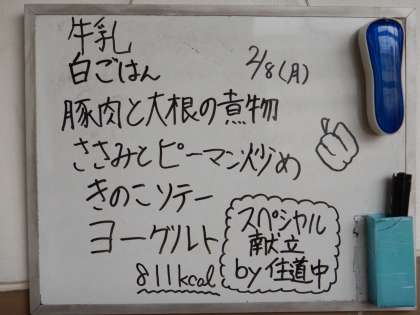 牛乳
白ごはん
2/8(月)
豚肉と大根の煮物
ささみとピーマン炒め
きのこソテー
ヨーグルト
811kcal
スペシャル
献立
by 住道中